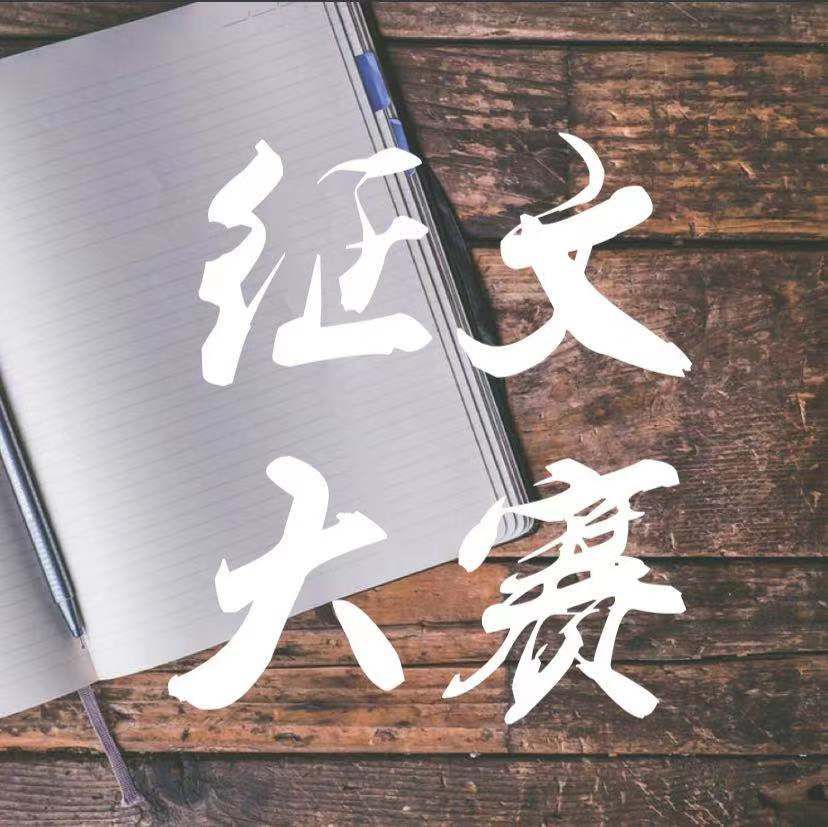 征文
大赛